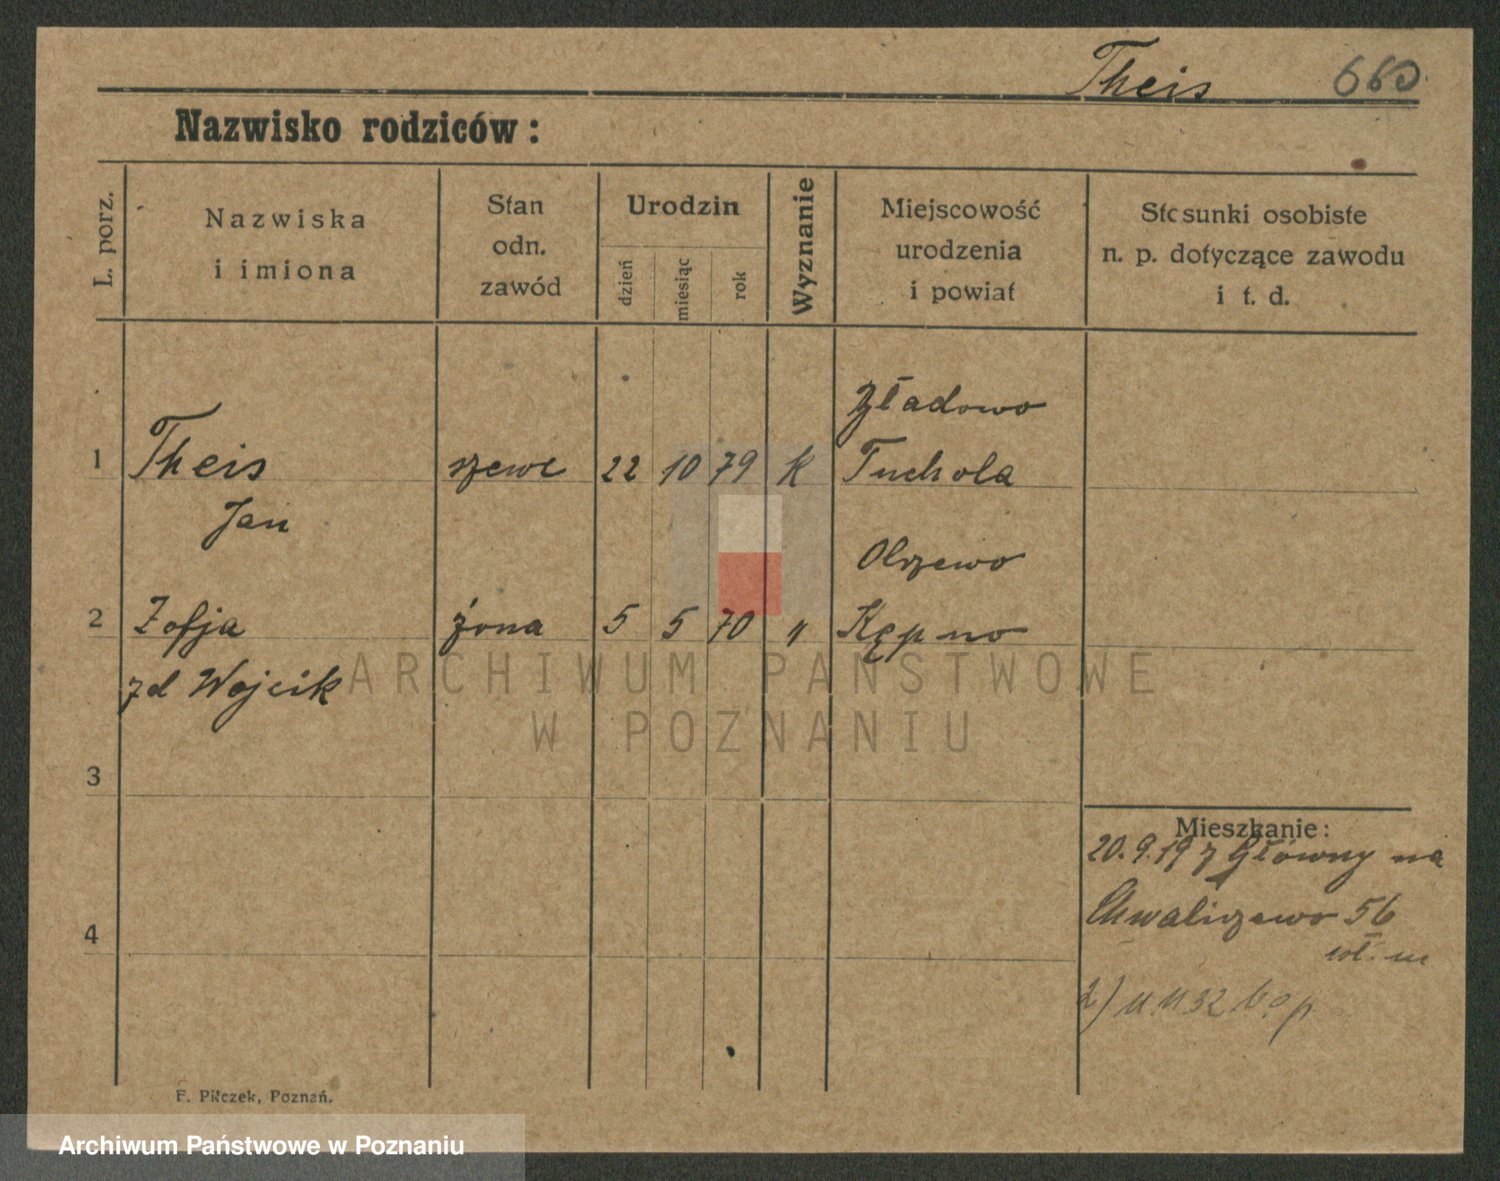 Theis 660
Nazwisko rodziców:
L. porz.
Nazwiska
i imiona
Stan
odn.
zawód
Urodzin
dzień
miesiąc
rok
Wyznanie
Miejscowość
urodzenia
i powiat
Stosunki osobiste
n. p. dotyczące zawodu
i t. d.
1 Theis szewc 22 10 79 K Tuchola
Jan
Olszewo
2 Zofja żona 5 5 70 " Kępno
zd Wojcik
ARCHIWUM PAŃSTWOWE
W POZNANIU
3
Mieszkanie:
20.9.19 z Główny na
Chwaliszewo 56
4
2)
F. Pilczek, Poznań.
Archiwum Państwowe w Poznaniu